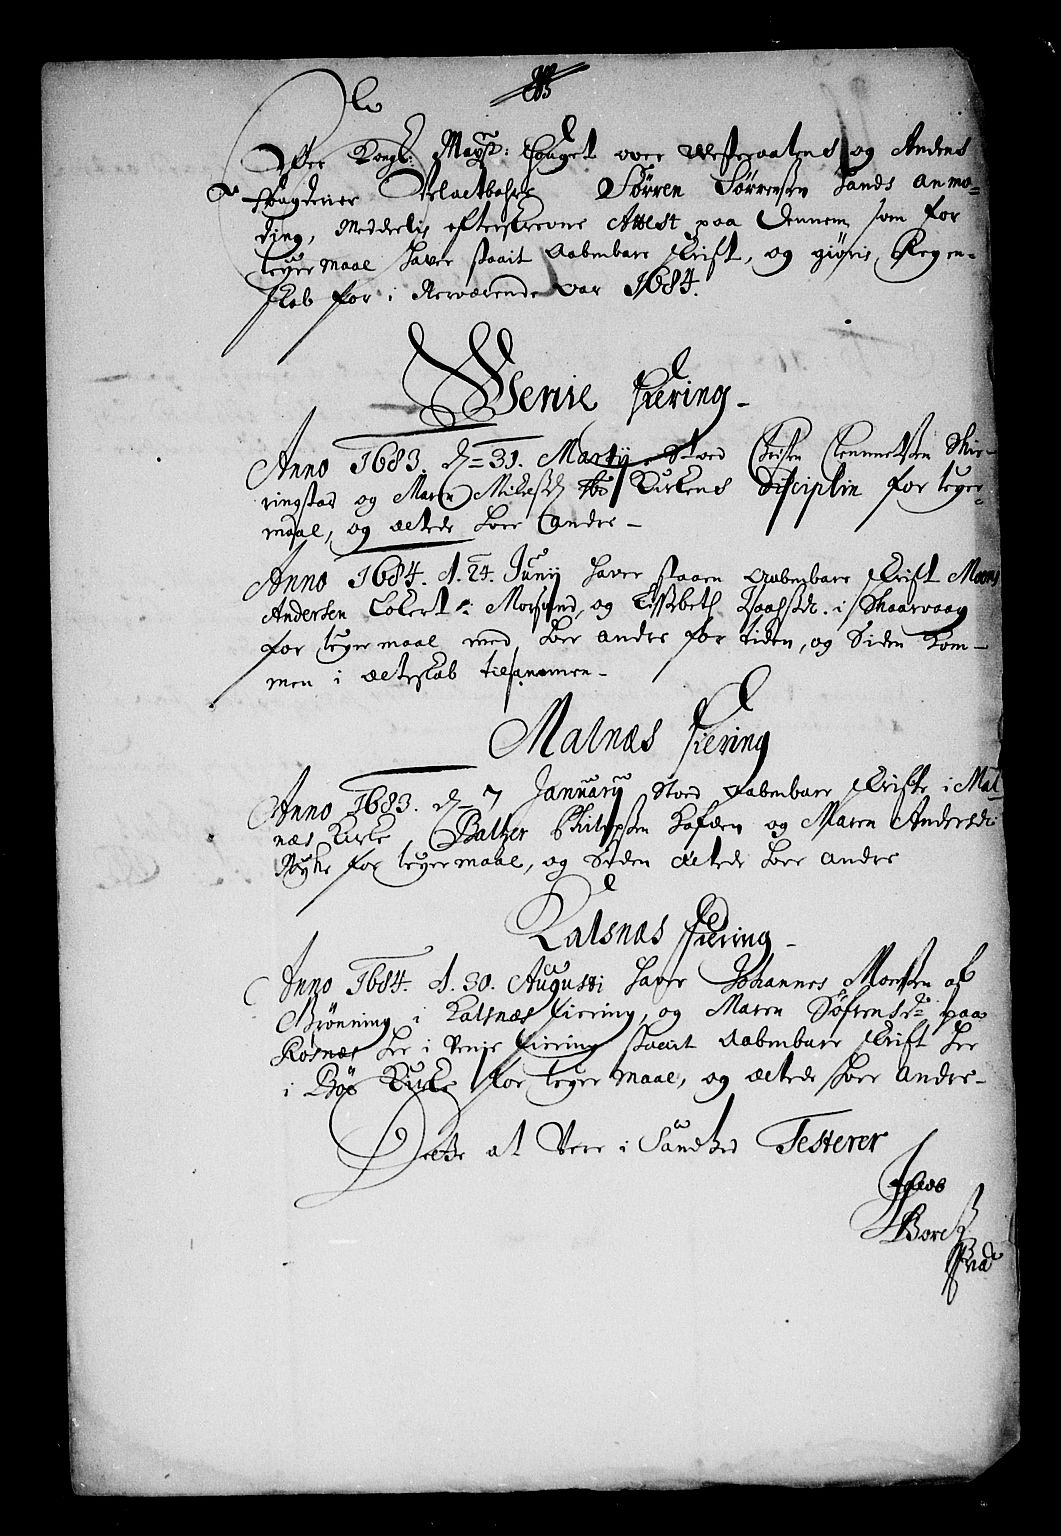 Efter Kongl: Mayst: Fouget over Westeraalens og Andens
Fougderier Velactbahre Sørren Sørrensen hands anmo-
ding, Meddeelis efterskrevne Attest paa dennem, som for
leyermaal haver staait Aabenbare skrift, og giøris Regen-
skab for i Nerværende aar 1684.
Wenie fiering
Anno 1683. d= 31. Martij. stoed Christen Clemmetsen Skie-
ringstad og Maren Michelsd Kirkens Disciplin for leyer-
maal, og ectede hver andre
Anno 1684. d. 24. Junij haver staaen Aabenbare skrift Mons
Andersen i Morsund, og Lissebeth i Skaarvaag
for leyermaal med hver andre for tiden, og siden kom-
men i ecteskab tilsammen
Malnæs fiering
Anno 1683. d= 7 January stoed Aabenbare skrifte i Mal-
næs Kirke, Baltzer Philipsen og Maren Andersd:
Nyke for leyermaal, og siden ectede hver andre
Kalsnæs fiering
Anno 1684. d. 30. Augusti haver Johannes Monsen af
Grønning i Kalsnæs fiering, og Maren Søfrensd: paa
Røsnæs her i Wenje fiering staait Aabenbare skrift her
i Bøe Kirke for leyermaal, og ectede hver andre
Dette at Vere i Sandhed Testerer
Jacob
Borch